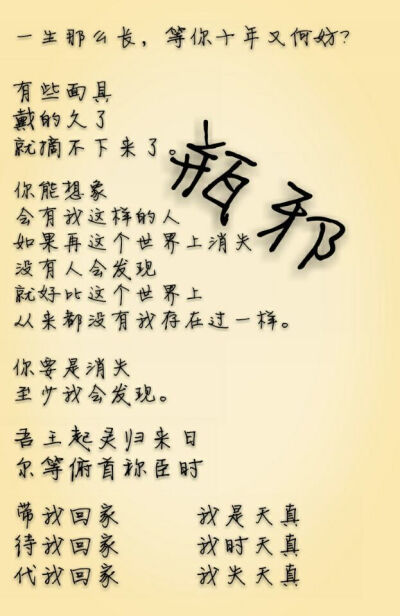 一生那么长，等你十年又何妨？
有些面具
戴的久了
就摘不下来了。
瓶邪
你能想象
会有我这样的人
如果再这个世界上消失
没有人会发现
就好比这个世界上
从来都没有我存在过一样。
你要是消失
至少我会发现。
吾王起灵归来日
尔等俯首称臣时
带我回家 我是天真
待我回家 我时天真
代我回家 我失天真